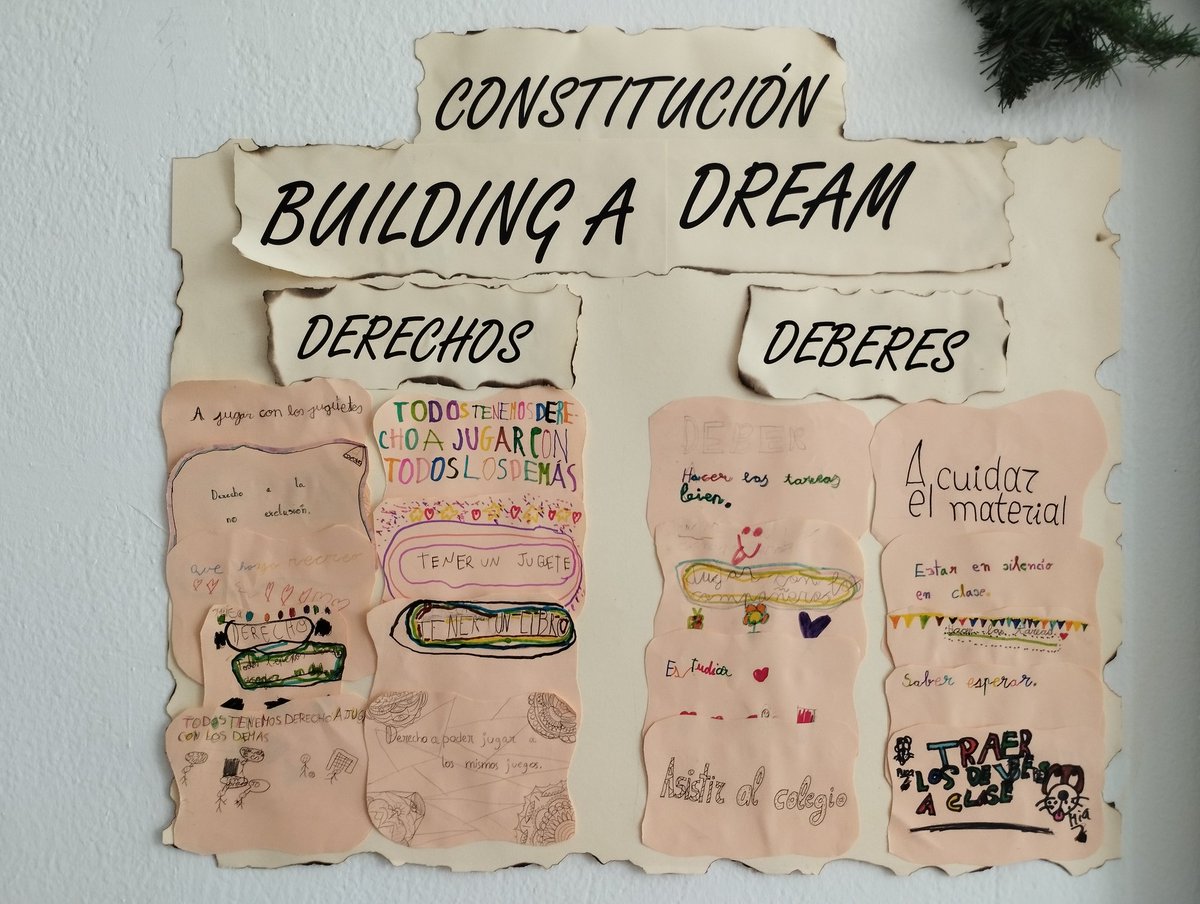 CONSTITUCIÓN
BUILDING A DREAM
DERECHOS
A jugar con los juguetes
Derecho a la
no exclusión.
que haya recreo
DERECHO
TODOS TENEMOS DERECHO A JUGAR
CON LOS DEMÁS
TODOS TENEMOS DERE-
CHO A JUGAR CON
TODOS LOS DEMÁS
TENER UN JUGETE
TENER UN LIBRO
Derecho a poder jugar a
los mismos juegos.
DEBERES
DEBER
Hacer las tareas
bien.
Jugar con los
compañeros
Estudiar
Asistir al colegio
A cuidar
el material
Estar en silencio
en clase.
Hacer las tareas.
Saber esperar.
TRAER
LOS DEVBERES
A CLASE
Mia